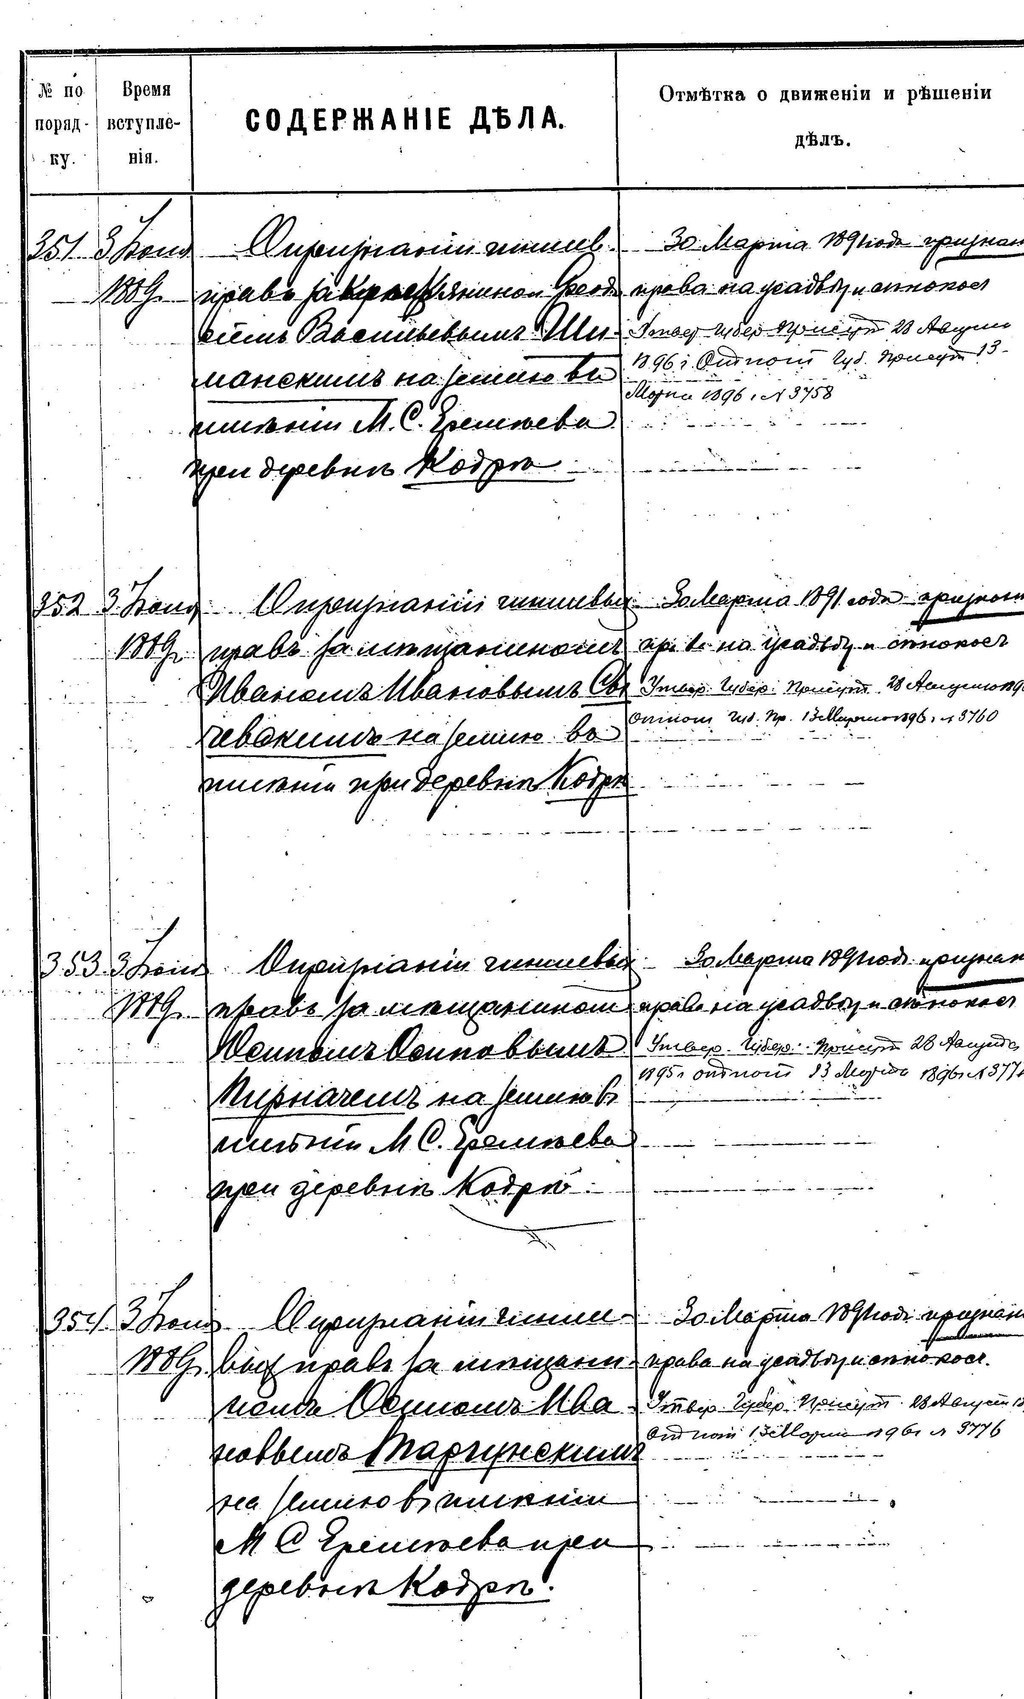 № по порядку.
Время вступленія.
СОДЕРЖАНІЕ ДѢЛА.
Отмѣтка о движеніи и рѣшеніи дѣлъ.
351 3 Іюня 1889.
О признаніи чиншев.
правъ за крестьяниномъ
Васильевымъ Ши-
манскимъ на землю въ
имѣніи М. С. Еремѣева
при деревнѣ Кодрѣ
30 Марта 1891 года признан
права на усадьбу и сѣнокос
Утвер. Губер. Присут. 28 Август
1896 г. Отдпош Губ. Присут 13
Марта 1896 г. № 3758
352 3 Іюня 1889.
О признаніи чиншевых
правъ за мѣщаниномъ
Иваномъ Ивановымъ
чевскимъ на землю въ
имѣніи при деревнѣ Кодрѣ
30 Марта 1891 года признан
права на усадьбу и сѣнокос
Утвер. Губер. Присут. 28 Августа
Губ. Пр. 13 Марта 1896 г. № 3760
353 3 Іюня 1889.
О признаніи чиншевых
правъ за мѣщанином
Осипомъ Осиповымъ
на землю въ
имѣніи М. С. Еремѣева
при деревнѣ Кодрѣ.
30 Марта 1891 года признан
права на усадьбу и сѣнокос
Утвер. Губер. Присут 28 Августа
1895 г. 13 Марта 1896 г. № 377
354 3 Іюня 1889.
О признаніи чинше-
вых правъ за мѣщани-
номъ Осипомъ Ива-
новымъ Таргунскимъ
на землю въ имѣніи
М. С. Еремѣева при
деревнѣ Кодрѣ.
30 Марта 1891 года признан
права на усадьбу и сѣнокос.
Утвер. Губер. Присут. 28 Август
13 Марта 1896 г. № 3776